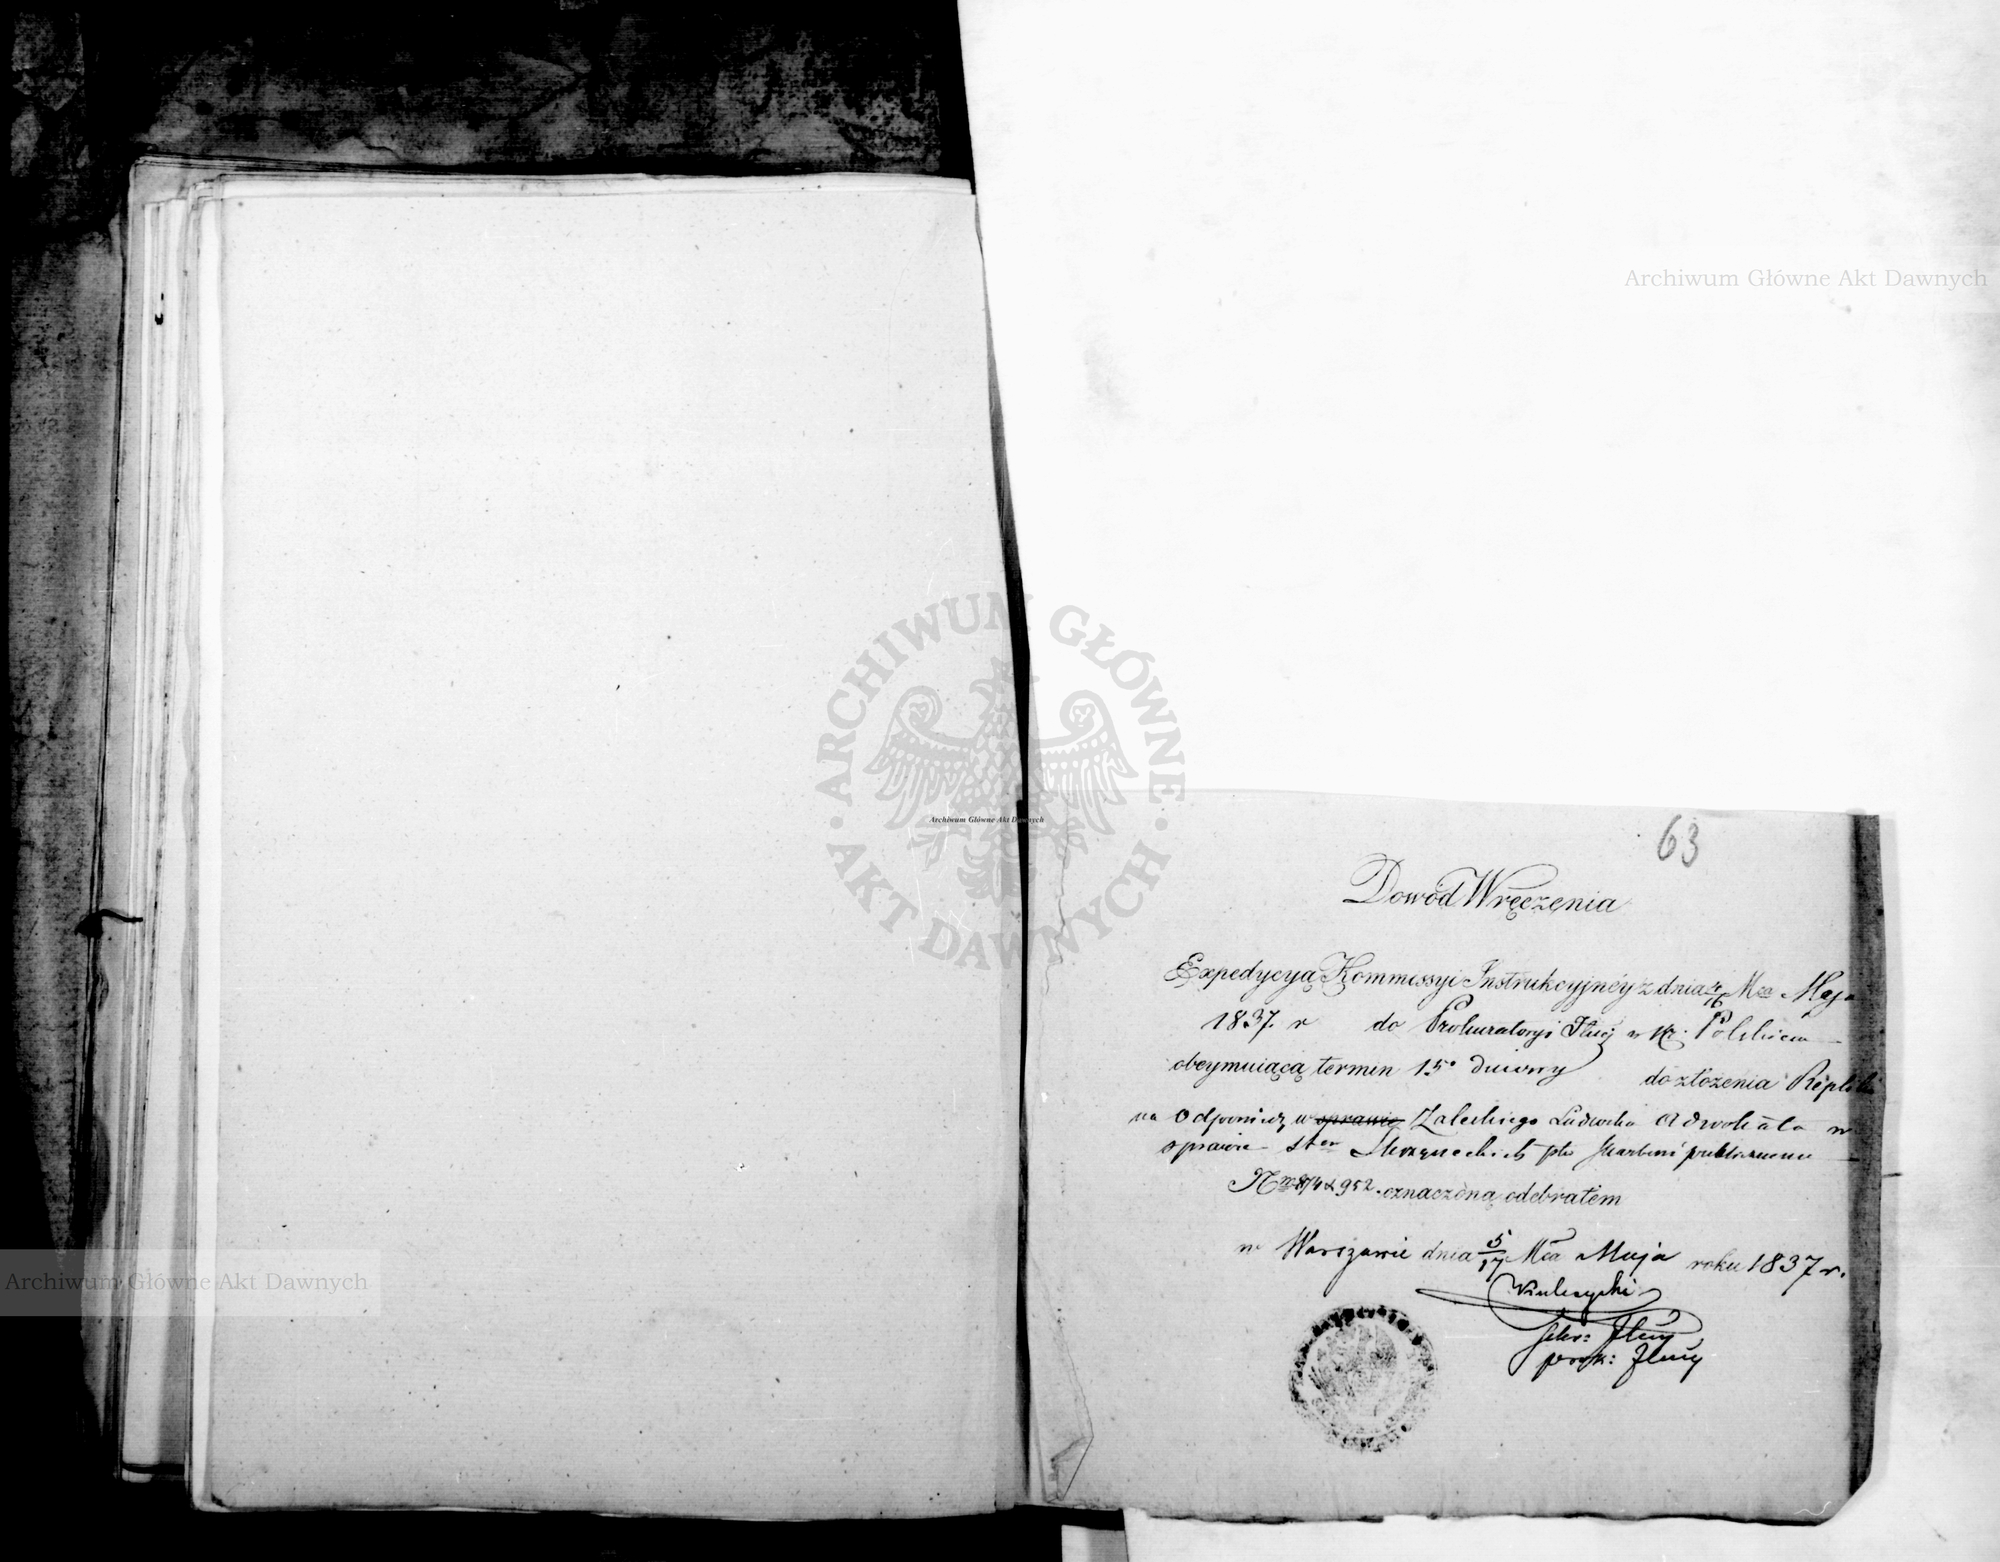 63
Dowód Wręczenia
Expedycyą Kommissyi Instrukcyjnéy z dnia 4/16 Mca Maja
1837. r do Prokuratoryi w Kr. Polskiem
obeymuiącą termin 15o dniowy do złożenia Repliki
na Odpowiedź w sprawie Zaleskiego Ludwika Adwokata w
sprawie Skarbowi publicznemu
Nro 874 & 952. oznaczoną odebrałem
w Warszawie dnia 5/17 Mca Maja roku 1837 r.
Sekr:
prok:
Archiwum Główne Akt Dawnych
Archiwum Główne Akt Dawnych
Archiwum Główne Akt Dawnych
ARCHIWUM GŁÓWNE AKT DAWNYCH